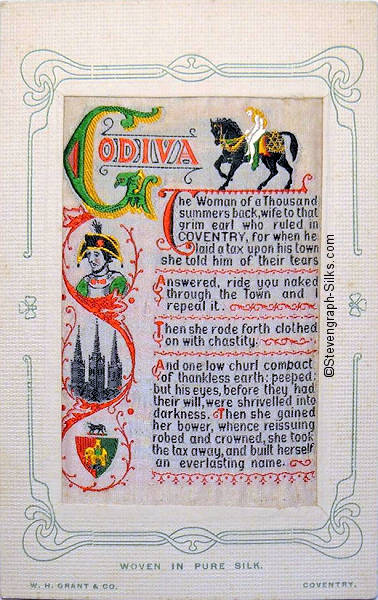 GODIVA
The Woman of a Thousand
summers back, wife to that
grim earl who ruled in
COVENTRY, for when he
laid a tax upon his town
she told him of their tears
Answered, ride you naked
through the Town and I
repeal it.
Then she rode forth clothed
on with chastity.
And one low churl compact
of thankless earth: peeped:
but his eyes, before they had
their will, were shrivelled into
darkness. Then she gained
her bower, whence reissuing
robed and crowned, she took
the tax away, and built herself
an everlasting name.
©Stevengraph-Silks.com
WOVEN IN PURE SILK.
W. H. GRANT & CO.
COVENTRY.